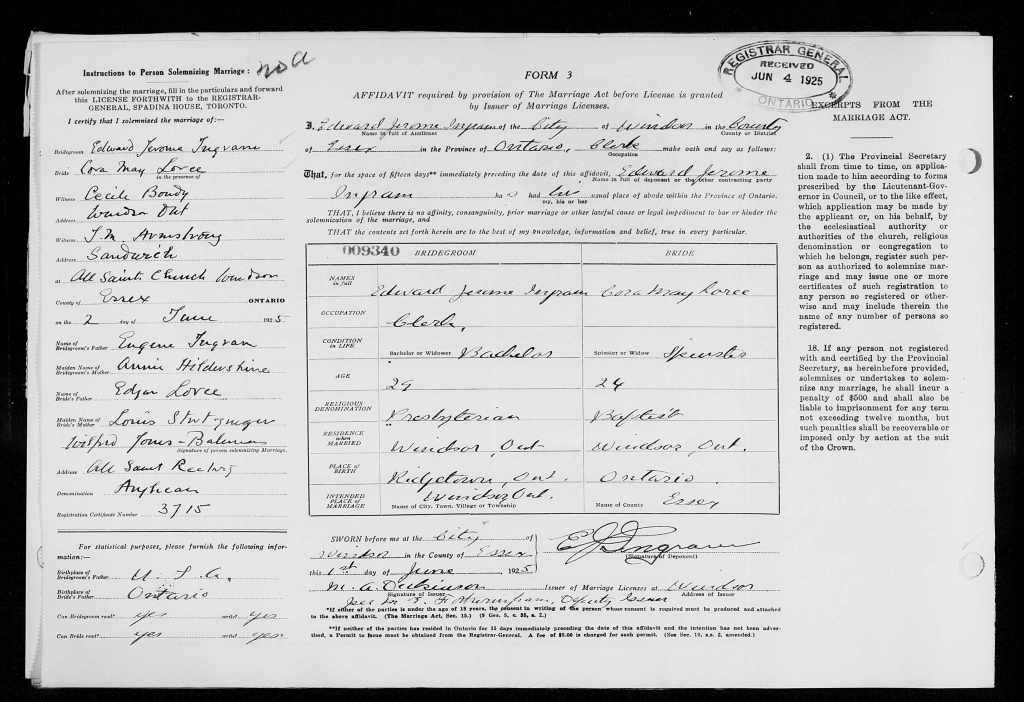 Instructions to Person Solemnizing Marriage:
After solemnizing the marriage, fill in the particulars and forward
this LICENSE FORTHWITH to the REGISTRAR-
GENERAL, SPADINA HOUSE, TORONTO.
I certify that I solemnized the marriage of:—
Bridegroom Edward Jerome Ingram
Bride Cora May Loree
in the presence of
Witness Cecile Bondy
Address Windsor Ont
Witness J. M. Armstrong
Address Sandwich
at All Saints Church Windsor
County of Essex ONTARIO
on the 2 day of June 1925
Name of Bridegroom's Father Eugene Ingram
Maiden Name of Bridegroom's Mother Annie
Name of Bride's Father Edgar Loree
Maiden Name of Bride's Mother
Wilfred Jones-Bateman
Signature of person solemnizing Marriage.
Address All Saint Rectory
Denomination Anglican
Registration Certificate Number 3715
For statistical purposes, please furnish the following infor-
mation:—
Birthplace of Bridegroom's Father U. S. A.
Birthplace of Bride's Father Ontario
Can Bridegroom read? yes write? yes
Can Bride read? yes write? yes
FORM 3
AFFIDAVIT required by provision of The Marriage Act before License is granted
by Issuer of Marriage Licenses.
I, Edward Jerome Ingram of the City of Windsor in the County
Name in Full of Affiant County or District
of Essex in the Province of Ontario, Clerk make oath and say as follows:
Occupation
That, for the space of fifteen days** immediately preceding the date of this affidavit, Edward Jerome
Name in full of deponent or the other contracting party
Ingram has had his usual place of abode within the Province of Ontario.
my, his or her
THAT, I believe there is no affinity, consanguinity, prior marriage or other lawful cause or legal impediment to bar or hinder the
solemnization of the marriage, and
THAT the contents set forth herein are to the best of my knowledge, information and belief, true in every particular.
009340 BRIDEGROOM BRIDE
NAMES in full Edward Jerome Ingram Cora May Loree
OCCUPATION Clerk,
CONDITION IN LIFE Bachelor or Widower Bachelor Spinster or Widow Spinster
AGE 29 24
RELIGIOUS DENOMINATION Presbyterian Baptist
RESIDENCE when MARRIED Windsor, Ont Windsor, Ont.
PLACE OF BIRTH Ridgetown, Ont. Ontario.
INTENDED PLACE OF MARRIAGE Windsor, Ont. Essex
Name of City, Town, Village or Township Name of County
SWORN before me at the City of
Windsor in the County of Essex
this 1st day of June 1925
E J Ingram
(Signature of Deponent)
M. A. Dickinson Issuer of Marriage Licenses at Windsor
Signature of Issuer Address of Issuer
Deputy Issuer
*If either of the parties is under the age of 18 years, the consent in writing of the person whose consent is required must be produced and attached
to the above affidavit. (The Marriage Act, Sec. 15.) (9 Geo. 5, c. 35, s. 2.)
**If neither of the parties has resided in Ontario for 15 days immediately preceding the date of this affidavit and the intention has not been adver-
tised, a Permit to Issue must be obtained from the Registrar-General. A fee of $5.00 is charged for such permit. (See Sec. 19, s.s. 2, amended.)
REGISTRAR GENERAL
RECEIVED
JUN 4 1925
ONTARIO
EXCERPTS FROM THE
MARRIAGE ACT.
2. (1) The Provincial Secretary
shall from time to time, on applica-
tion made to him according to forms
prescribed by the Lieutenant-Gov-
ernor in Council, or to the like effect,
which application may be made by
the applicant or, on his behalf, by
the ecclesiastical authority or
authorities of the church, religious
denomination or congregation to
which he belongs, register such per-
son as authorized to solemnize mar-
riage and may issue one or more
certificates of such registration to
any person so registered or other-
wise and may include therein the
name of any number of persons so
registered.
18. If any person not registered
with and certified by the Provincial
Secretary, as hereinbefore provided,
solemnizes or undertakes to solem-
nize any marriage, he shall incur a
penalty of $500 and shall also be
liable to imprisonment for any term
not exceeding twelve months, but
such penalties shall be recoverable or
imposed only by action at the suit
of the Crown.